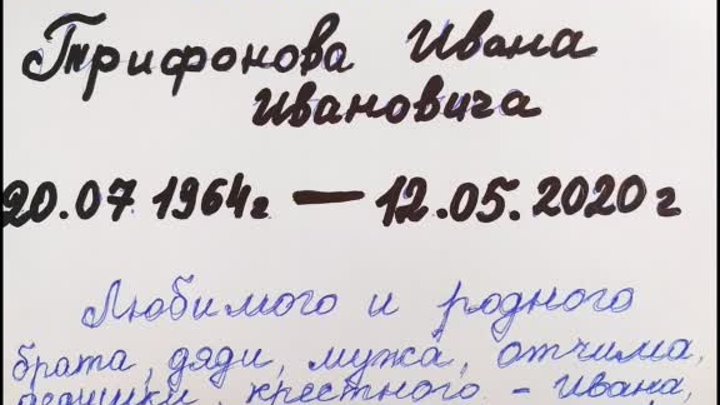 Трифонова Ивана
Ивановича
20.07 1964г — 12.05.2020г
Любимого и родного
брата, дяди, мужа, отчима,
дедушки, крестного - Ивана,